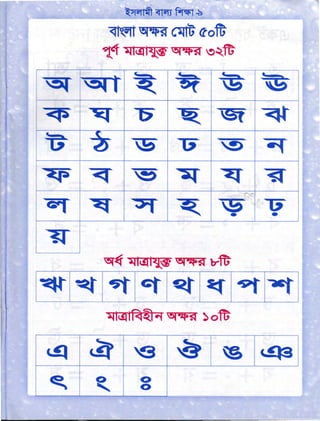 ইসলামী বাল্য শিক্ষা ৯
বাংলা অক্ষর মোট ৫০টি
পূর্ণ মাত্রাযুক্ত অক্ষর ৩২টি
অ আ ই ঈ উ ঊ
ক ঘ চ ছ জ ঝ
ট ঠ ড ঢ ত ন
ফ ব ভ ম য র
ল ষ স হ ড় ঢ়
য়
অর্ধ মাত্রাযুক্ত অক্ষর ৮টি
ঋ খ গ ণ থ ধ প শ
মাত্রাবিহীন অক্ষর ১০টি
এ ঐ ও ঔ ঙ ঞ
ৎ ং ঃ